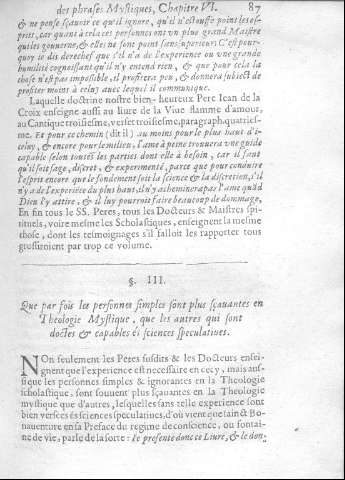 des phrases Mystiques, Chapitre VI. 87
& ne pense sçauoir ce qu'il ignore, qu'il n'estouffe point les es-
prits, car quant à cela ces personnes ont vn plus grand Maistre
qui les gouuerne, & elles ne sont point sans superieurs C'est pour-
quoy ie dis derechef que s'il n'a de l'experience ou vne grande
humilité cognoissant qu'il n'y entend rien, & que pour cela la
chose n'est pas impossible, il profitera peu, & donnera subiect de
profiter moins à celuy auec lequel il communique.
Laquelle doctrine nostre bien-heureux Pere Iean de la
Croix enseigne aussi au liure de la Viue flamme d'amour,
au Cantique troisiesme, verset troisiesme, paragraph. quatries-
me. Et pour ce chemin (dit il) au moins pour le plus haut d'i-
celuy, & encore pour le milieu, l'ame à peine trouuera vne guide
capable selon toutes les parties dont elle à besoin, car il faut
qu'il soit sage, discret, & experimenté, parce que pour conduire
l'esprit encore que le fondement soit la science & la discretion, s'il
n'y a de l'experiēce du plus haut, ils n'y achemineras pas l'ame quād
Dieu l'y attire, & il luy pourroit faire beaucoup de dommage.
En fin tous le SS. Peres, tous les Docteurs & Maistres spi-
rituels, voire mesme les Scholastiques, enseignent la mesme
chose, dont les tesmoignages s'il falloit les rapporter tous
grossiroient par trop ce volume.
§. III.
Que par fois les personnes simples sont plus sçauantes en
Theologie Mystique, que les autres qui sont
doctes & capables és sciences speculatiues.
NOn seulement les Peres susdits & les Docteurs ensei-
gnent que l'experience est necessaire en cecy, mais aus-
si que les personnes simples & ignorantes en la Theologie
scholastique, sont souuent plus sçauantes en la Theologie
mystique que d'autres, lesquelles sans telle experience sont
bien versées és sciences speculatiues, d'où vient que sainct Bo-
nauenture en sa Preface du regime de conscience, ou fontai-
ne de vie, parle de la sorte: Ie presente donc ce Liure, & le don-